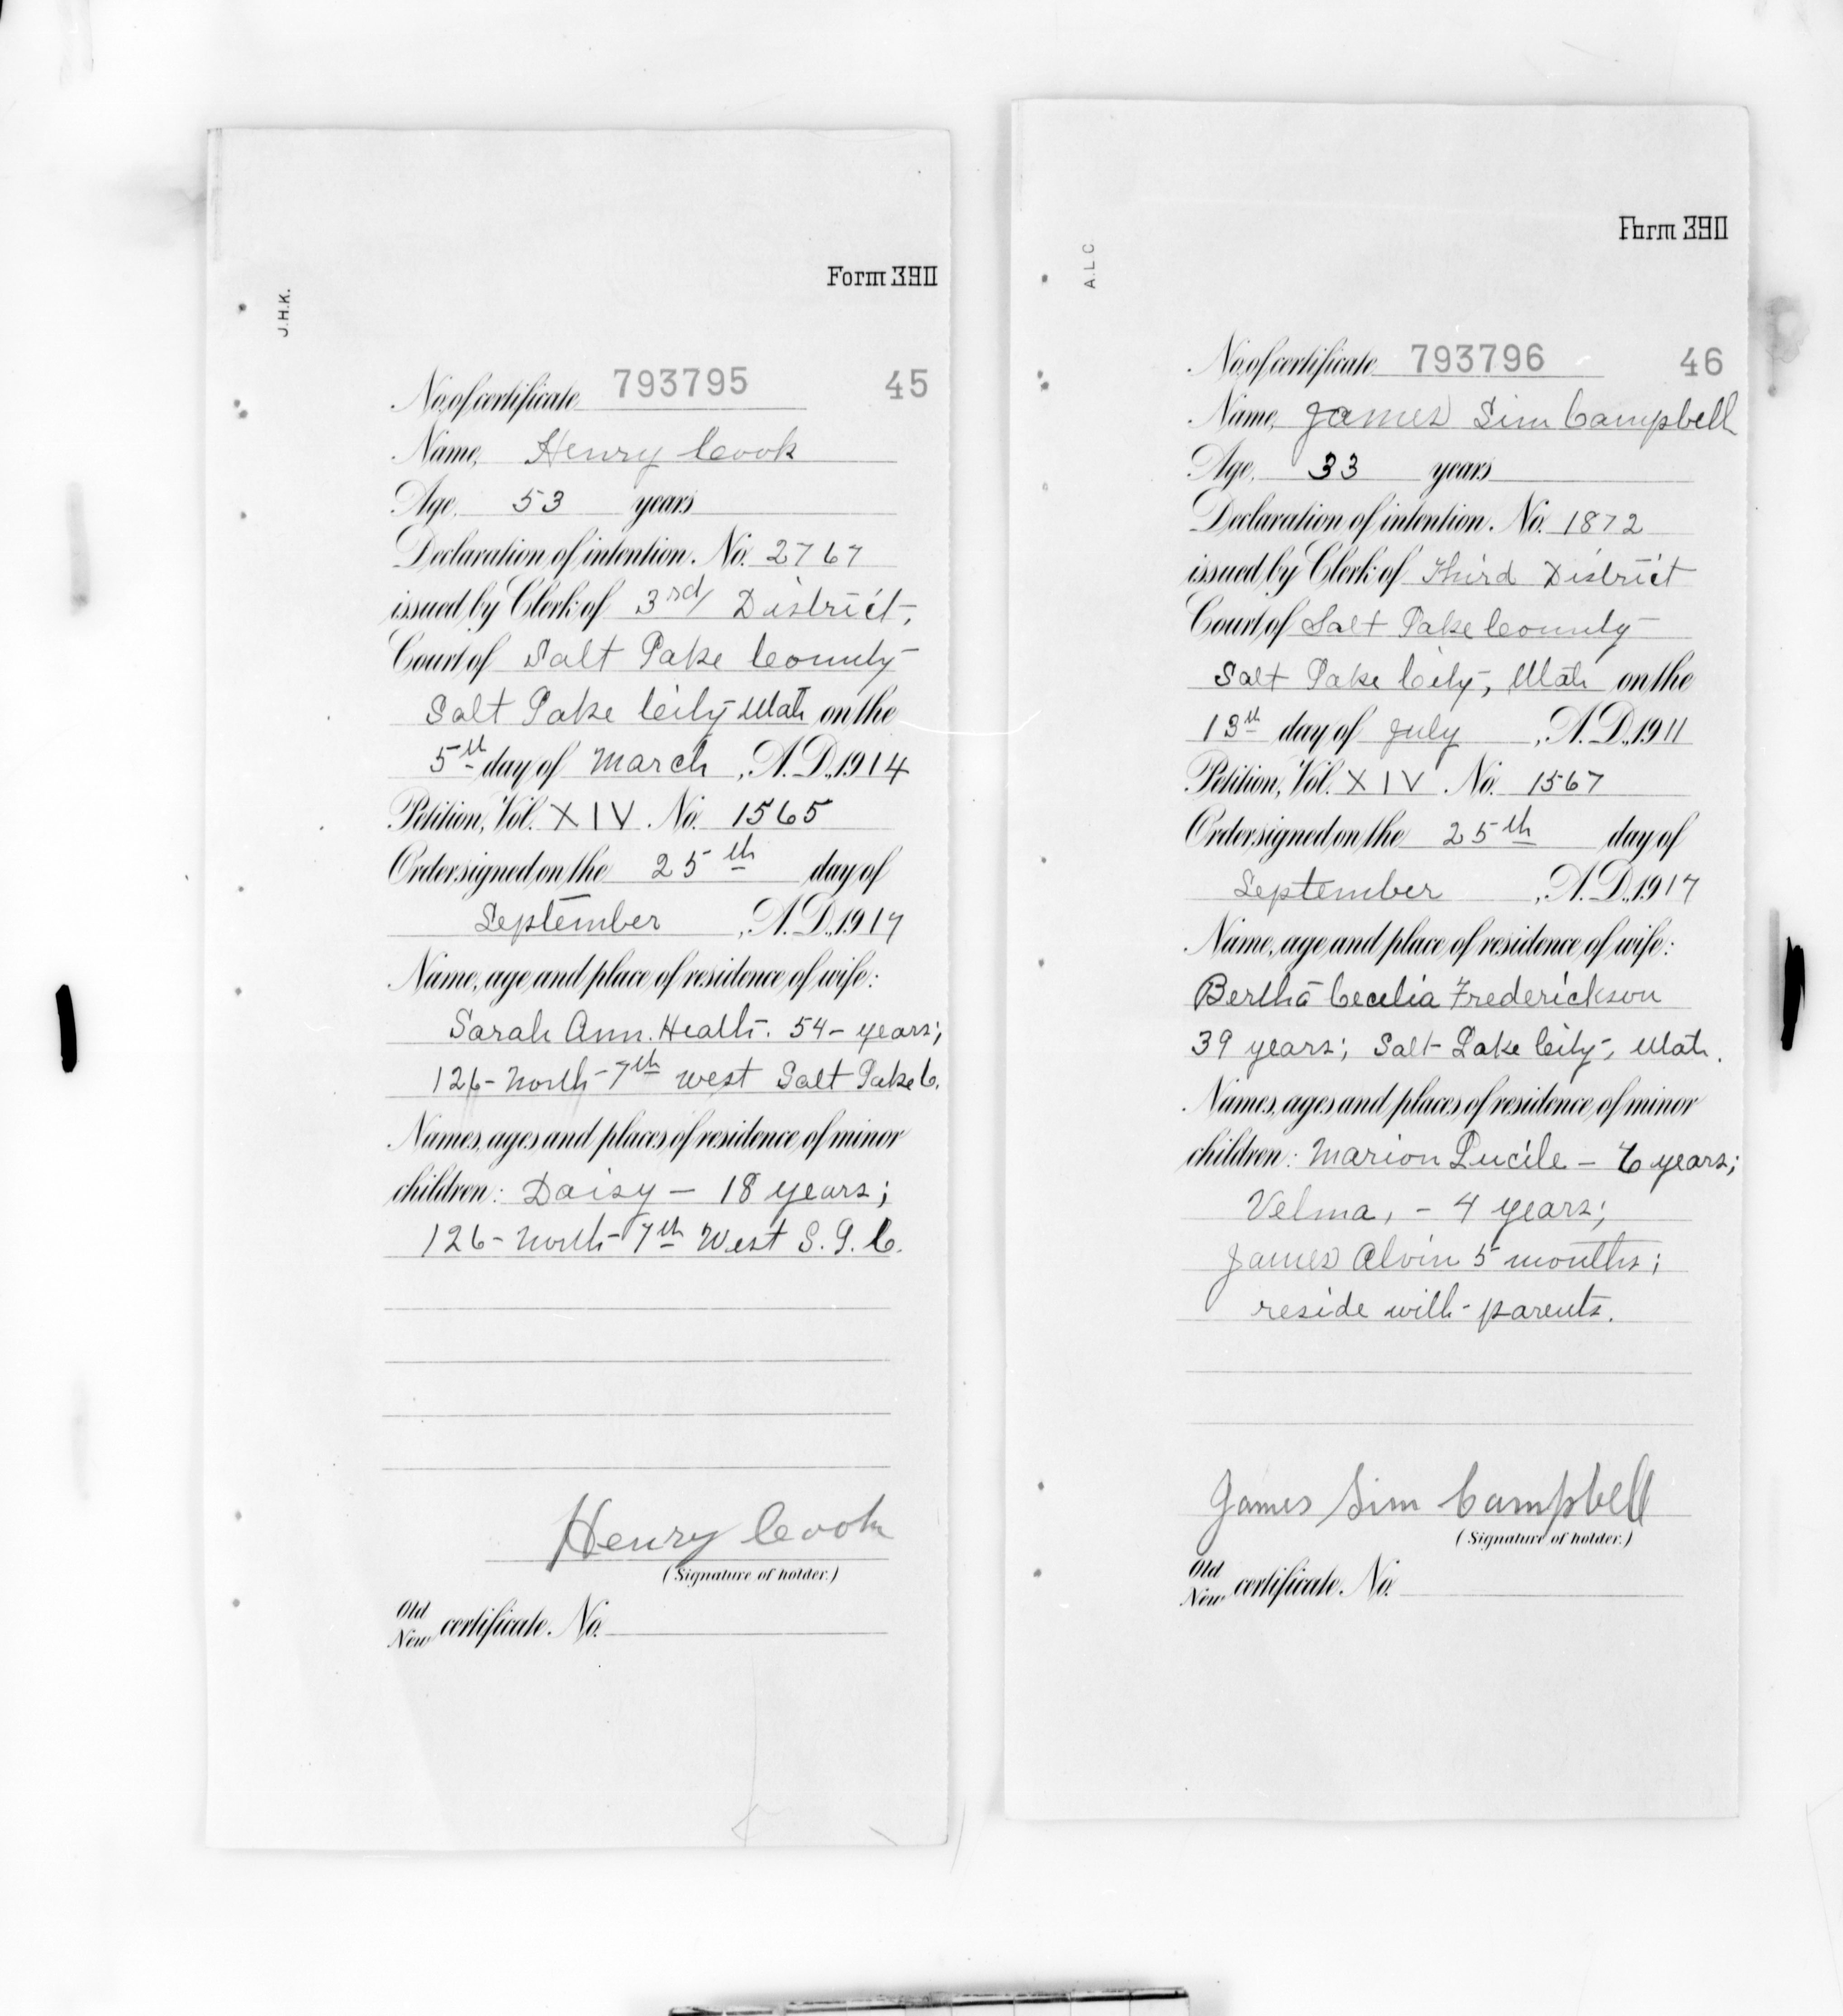 Form 390
J.H.K.
No. of certificate 793795 45
Name, Henry Cook
Age, 53 years
Declaration of intention. No. 2767
issued by Clerk of 3rd District,
Court of Salt Lake County
Salt Lake City Utah on the
5th day of March, A.D., 1914
Petition, Vol. XIV. No. 1565
Order signed on the 25th day of
September, A.D., 1917
Name, age and place of residence of wife:
Sarah Ann. Heath. 54 - years;
126 - North - 7th West Salt Lake C.
Names, ages and places of residence of minor
children: Daisy - 18 years;
126 - North - 7th West S. L. C.
Henry Cook
(Signature of holder.)
Old
New certificate. No.
Form 390
A.L.C
No. of certificate 793796 46
Name, James Sim Campbell
Age, 33 years
Declaration of intention. No. 1872
issued by Clerk of Third District
Court of Salt Lake County
Salt Lake City, Utah on the
13th day of July, A.D., 1911
Petition, Vol. XIV. No. 1567
Order signed on the 25th day of
September, A.D., 1917
Name, age and place of residence of wife:
Bertha Cecelia Frederickson
39 years; Salt Lake City, Utah.
Names, ages and places of residence of minor
children: Marion Lucile - 6 years;
Velma, - 4 years;
James Alvin 5 months;
reside with parents.
James Sim Campbell
(Signature of holder.)
Old
New certificate. No.